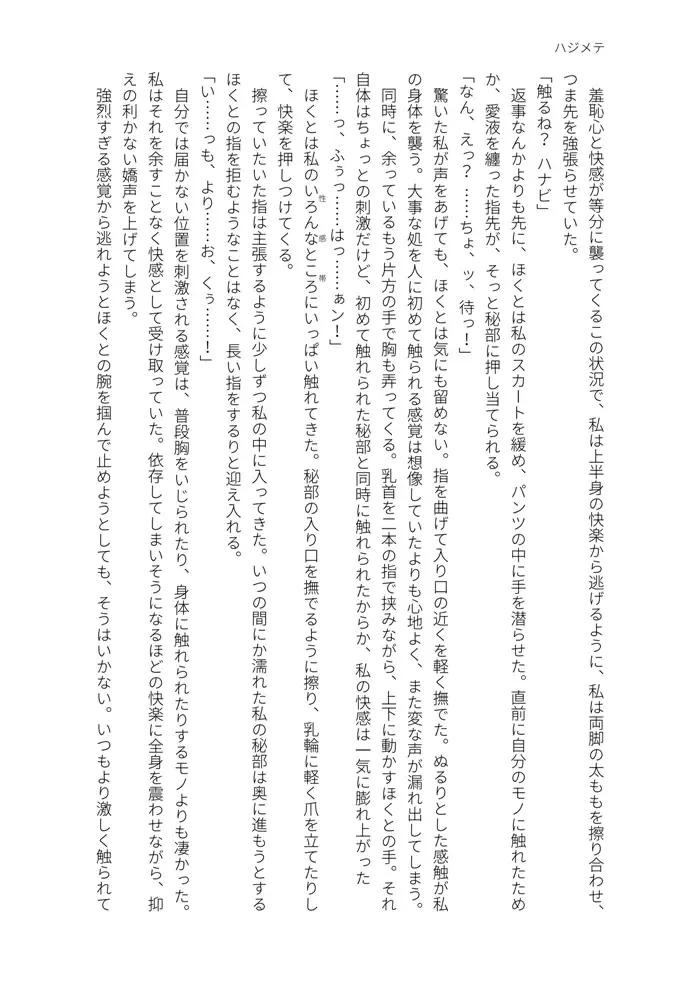 ハジメテ
羞恥心と快感が等分に襲ってくるこの状況で、私は上半身の快楽から逃げるように、私は両脚の太ももを擦り合わせ、
つま先を強張らせていた。
「触るね？ ハナビ」
返事なんかよりも先に、ほくとは私のスカートを緩め、パンツの中に手を潜らせた。直前に自分のモノに触れたため
か、愛液を纏った指先が、そっと秘部に押し当てられる。
「なん、えっ？ ……ちょ、ッ、待っ！」
驚いた私が声をあげても、ほくとは気にも留めない。指を曲げて入り口の近くを軽く撫でた。ぬるりとした感触が私
の身体を襲う。大事な処を人に初めて触られる感覚は想像していたよりも心地よく、また変な声が漏れ出してしまう。
同時に、余っているもう片方の手で胸も弄ってくる。乳首を二本の指で挟みながら、上下に動かすほくとの手。それ
自体はちょっとの刺激だけど、初めて触れられた秘部と同時に触れられたからか、私の快感は一気に膨れ上がった
「……っ、ふぅっ……はっ……ぁン！」
ほくとは私のいろんなところにいっぱい触れてきた。秘部の入り口を撫でるように擦り、乳輪に軽く爪を立てたりし
性感帯
て、快楽を押しつけてくる。
擦っていたいた指は主張するように少しずつ私の中に入ってきた。いつの間にか濡れた私の秘部は奥に進もうとする
ほくとの指を拒むようなことはなく、長い指をするりと迎え入れる。
「い……っも、より……お、くぅ……！」
自分では届かない位置を刺激される感覚は、普段胸をいじられたり、身体に触れられたりするモノよりも凄かった。
私はそれを余すことなく快感として受け取っていた。依存してしまいそうになるほどの快楽に全身を震わせながら、抑
えの利かない嬌声を上げてしまう。
強烈すぎる感覚から逃れようとほくとの腕を掴んで止めようとしても、そうはいかない。いつもより激しく触られて